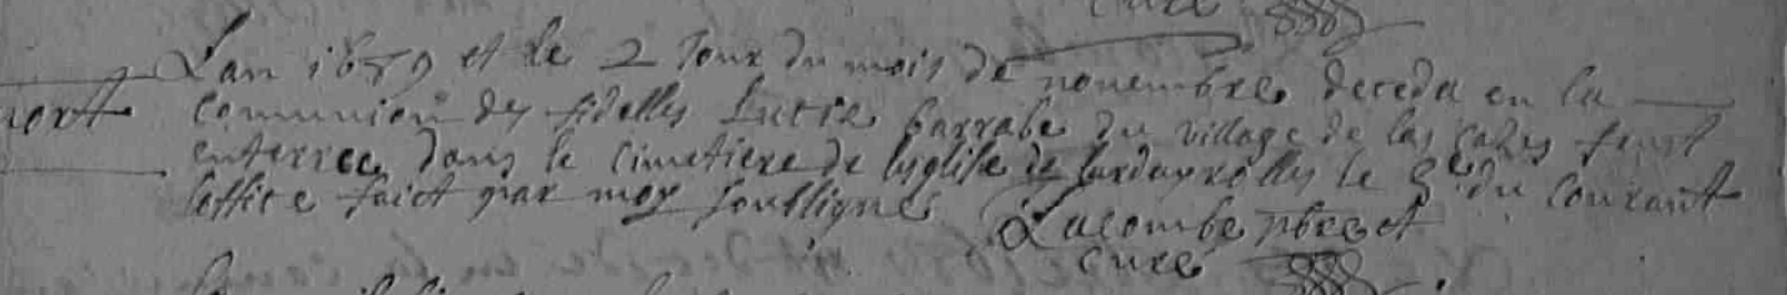 Curé
L'an 1679 et le 2 Jour du mois de novembre deceda en la
mort communion des fidelles Lucie barrabe du village de las cazes feust
enterree dans le cimetiere de lesglise de le 3e du courant
l'office faict par moy soubsigne Lacombe pbre et
curé